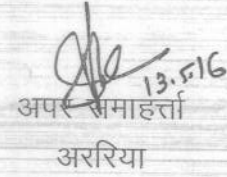 13.5.16
अपर समाहर्त्ता
अररिया